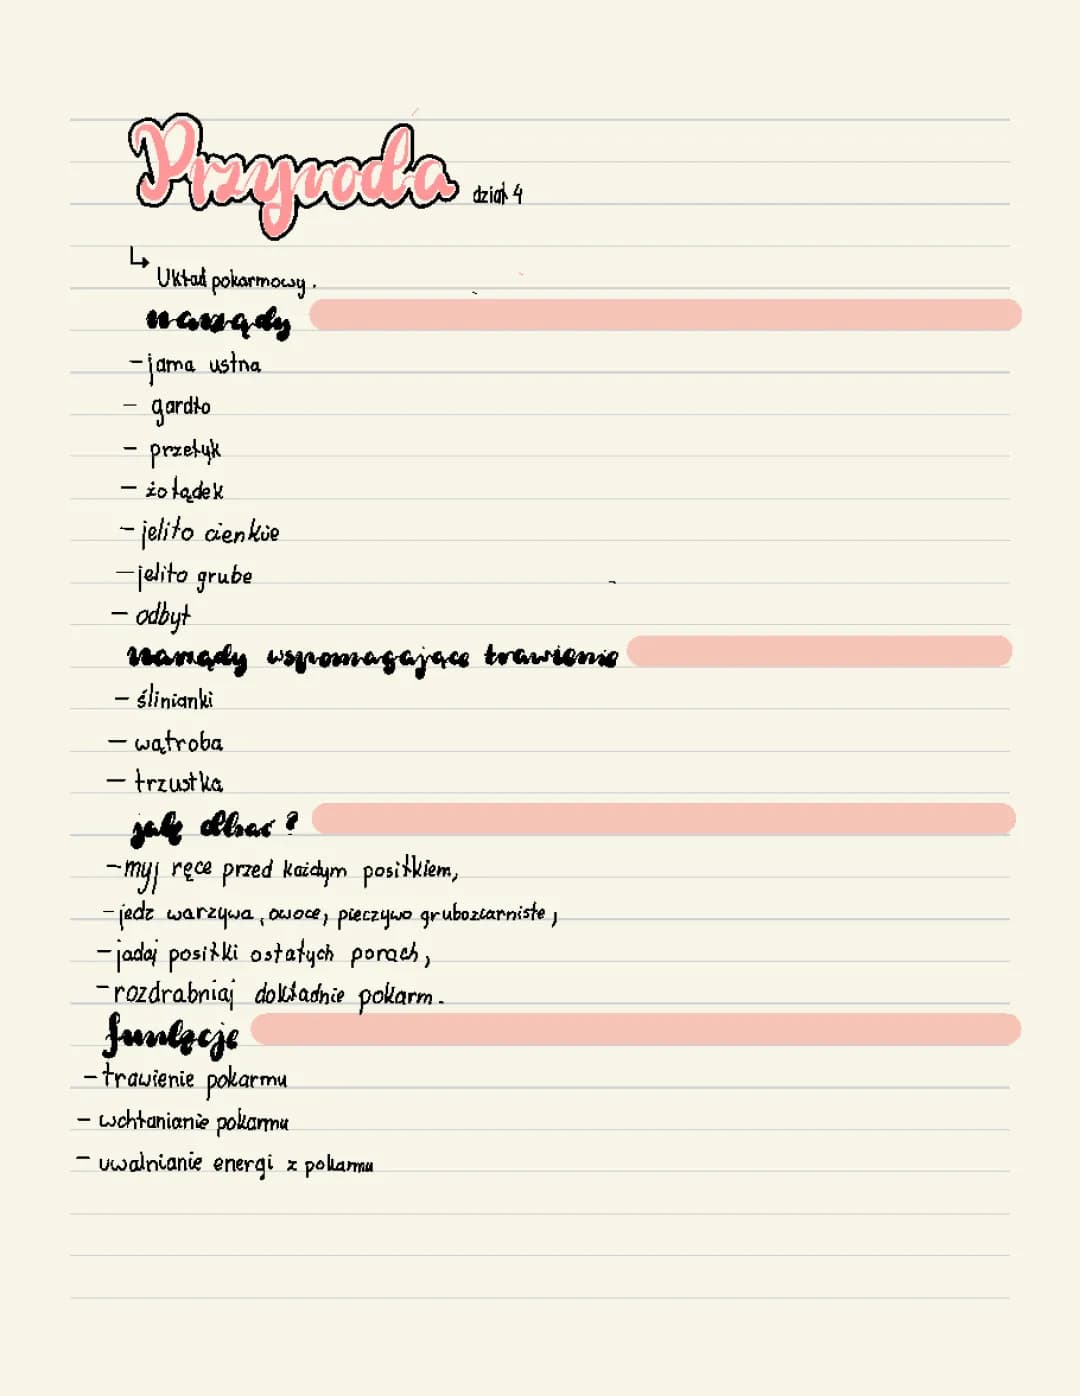 Przyroda dział 4
Układ pokarmowy.
narządy
- jama ustna
- gardło
- przełyk
- żołądek
- jelito cienkie
- jelito grube
- odbyt
narządy wspomagające trawienie
- ślinianki
- wątroba
- trzustka
jak dbać?
- myj ręce przed każdym posiłkiem,
- jedz warzywa, owoce, pieczywo gruboziarniste,
- jadaj posiłki o stałych porach,
- rozdrabniaj dokładnie pokarm.
funkcje
- trawienie pokarmu
- wchłanianie pokarmu
- uwalnianie energi z pokarmu